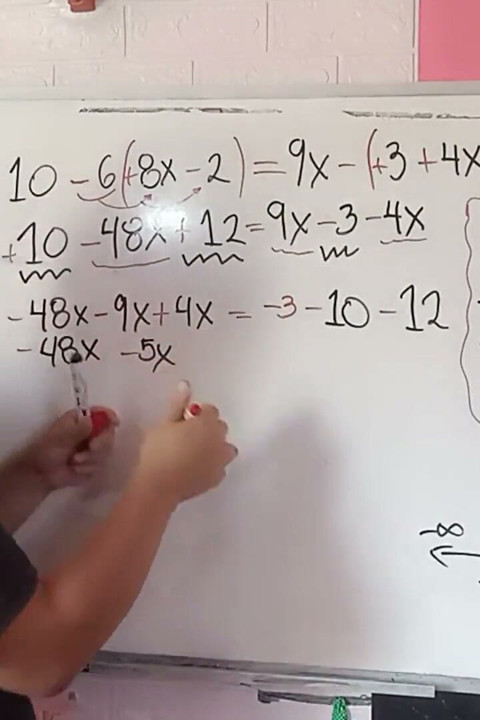 10 - 6(+8x - 2) = 9x - (+3 + 4x
+10 - 48x + 12 = 9x - 3 - 4x
- 48x - 9x + 4x = -3 - 10 - 12
- 48x - 5x
-∞